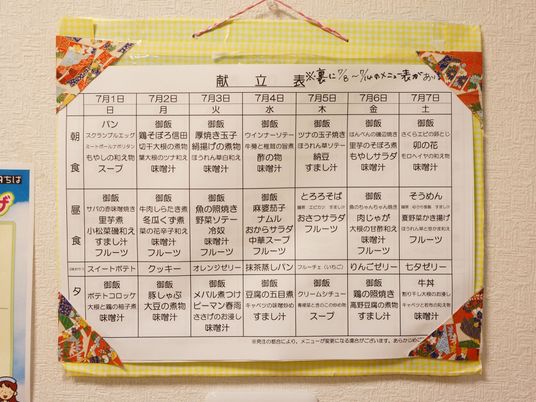 献立表
※裏に7/8~7/14のメニュー表があります
7月1日 7月2日 7月3日 7月4日 7月5日 7月6日 7月7日
日 月 火 水 木 金 土
朝食
パン 御飯 御飯 御飯 御飯 御飯 御飯
スクランブルエッグ 鶏そぼろ信田 厚焼き玉子 ウインナーソテー ツナの玉子焼き はんぺんの磯辺焼き さくらエビの卵とじ
ミートボールナポリタン 切干大根の煮物 絹揚げの煮物 牛蒡と椎茸の旨煮 ほうれん草ソテー 里芋のそぼろ煮 卯の花
もやしの和え物 葉大根のツナ和え ほうれん草白和え 酢の物 納豆 もやしサラダ モロヘイヤの和え物
スープ 味噌汁 味噌汁 味噌汁 すまし汁 味噌汁 味噌汁
昼食
御飯 御飯 御飯 御飯 とろろそば 御飯 そうめん
サバの赤味噌焼き 牛肉しらたき煮 魚の照焼き 麻婆茄子 魚のちゃんちゃん焼き
里芋煮 冬瓜くず煮 野菜ソテー ナムル おさつサラダ 肉じゃが 夏野菜かき揚げ
小松菜磯和え 菜の花辛子和え 冷奴 おからサラダ フルーツ 大根の甘酢和え ほうれん草と笹かま和え
すまし汁 味噌汁 味噌汁 中華スープ 味噌汁 フルーツ
フルーツ フルーツ フルーツ フルーツ フルーツ
スイートポテト クッキー オレンジゼリー 抹茶蒸しパン フルーチェ(いちご) りんごゼリー 七夕ゼリー
夕
御飯 御飯 御飯 御飯 御飯 御飯 牛丼
ポテトコロッケ 豚しゃぶ メバル煮つけ 豆腐の五目煮 クリームシチュー 鶏の照焼き 割り干し大根のお浸し
大根と鶏の柚子煮 大豆の煮物 ピーマン春雨 キャベツの味噌炒め 高野豆腐の煮物 キャベツと若布の和え物
味噌汁 味噌汁 ささげのお浸し すまし汁 スープ すまし汁 味噌汁
味噌汁
※発注の都合により、メニューが変更になる場合がございます。あらかじめご